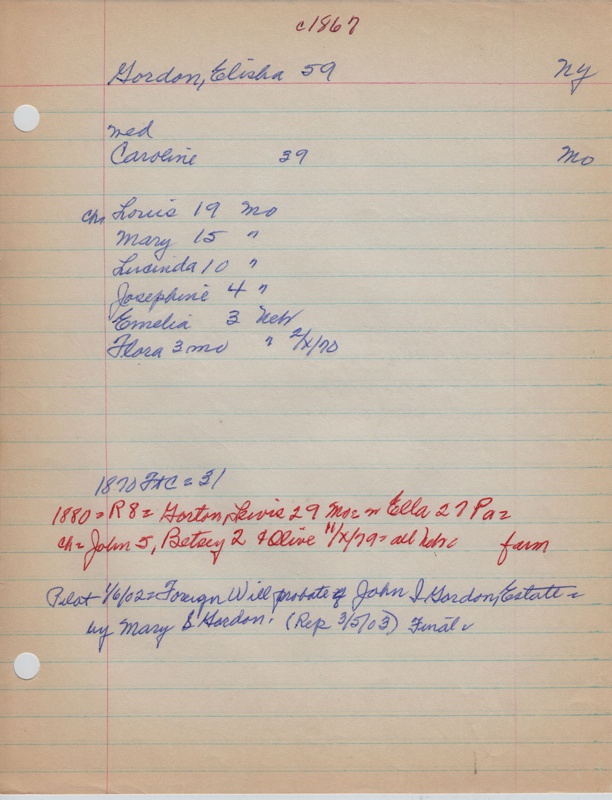 c1867
Gordon, Elisha 59 Ny
wed
Caroline 39 Mo
ch. Louis 19 Mo
Mary 15 "
Lucinda 10 "
Josephine 4 "
Emelia 3 Neb
Flora 3 mo " 2/x/70
1870 = 31
1880 = R8 = Gorton, Lewis 29 Mo = w Ella 27 Pa =
ch = John 5, Betsey 2 & Olive 11/x/79 = all Nebr farm
Pilot 1/6/02 = Foreign Will probate of John I Gordon, Estate =
by Mary S Gordon. (Rep 3/5/03) Final